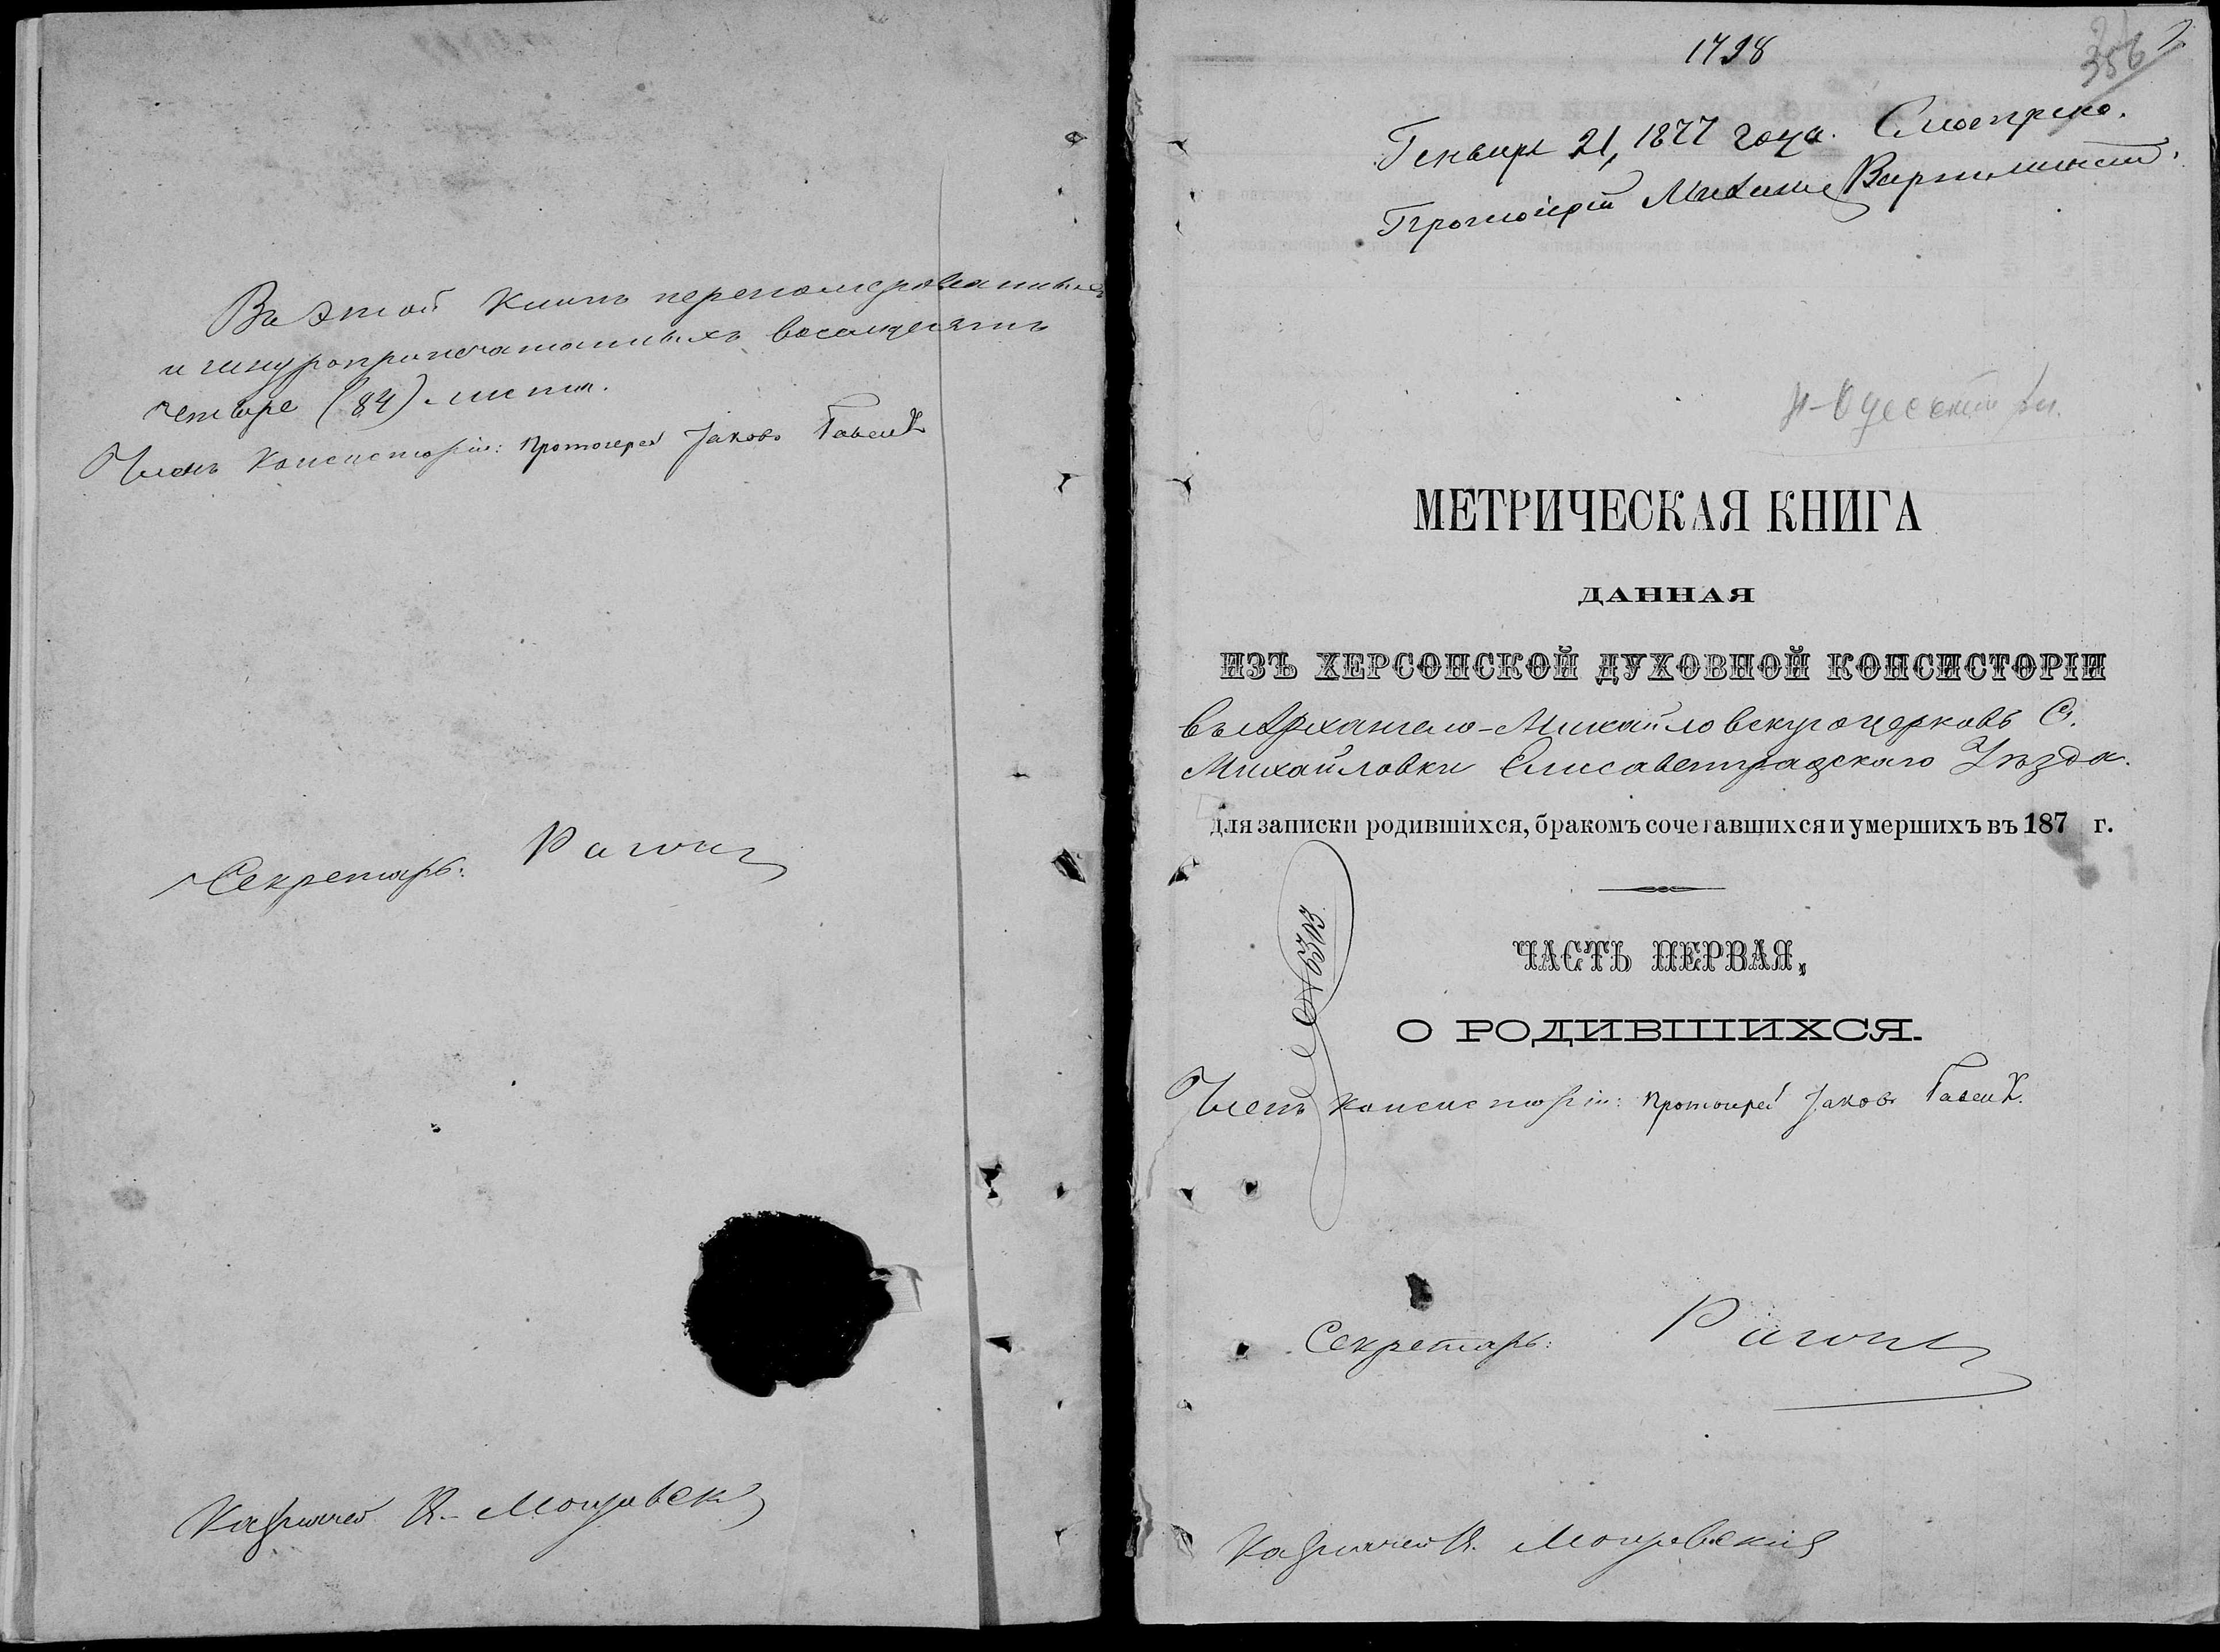 Въ этой Книгѣ перенумерованныхъ
и шнуроприпечатанныхъ восемдесятъ
четыре (84) листа.
Членъ Консисторіи: Протоіерей Іаковъ
Секретарь:
Казначей
1798
356
Генваря 21, 1877 года. Смотрено.
Протоіерей
МЕТРИЧЕСКАЯ КНИГА
ДАННАЯ
ИЗЪ ХЕРСОНСКОЙ ДУХОВНОЙ КОНСИСТОРІИ
въ Архангело-Михайловскую церковь С.
Михайловки Елисаветградскаго Уѣзда.
для записки родившихся, бракомъ сочетавшихся и умершихъ въ 187 г.
ЧАСТЬ ПЕРВАЯ,
О РОДИВШИХСЯ.
Членъ Консисторіи: Протоіерей Іаковъ
Секретарь:
Казначей